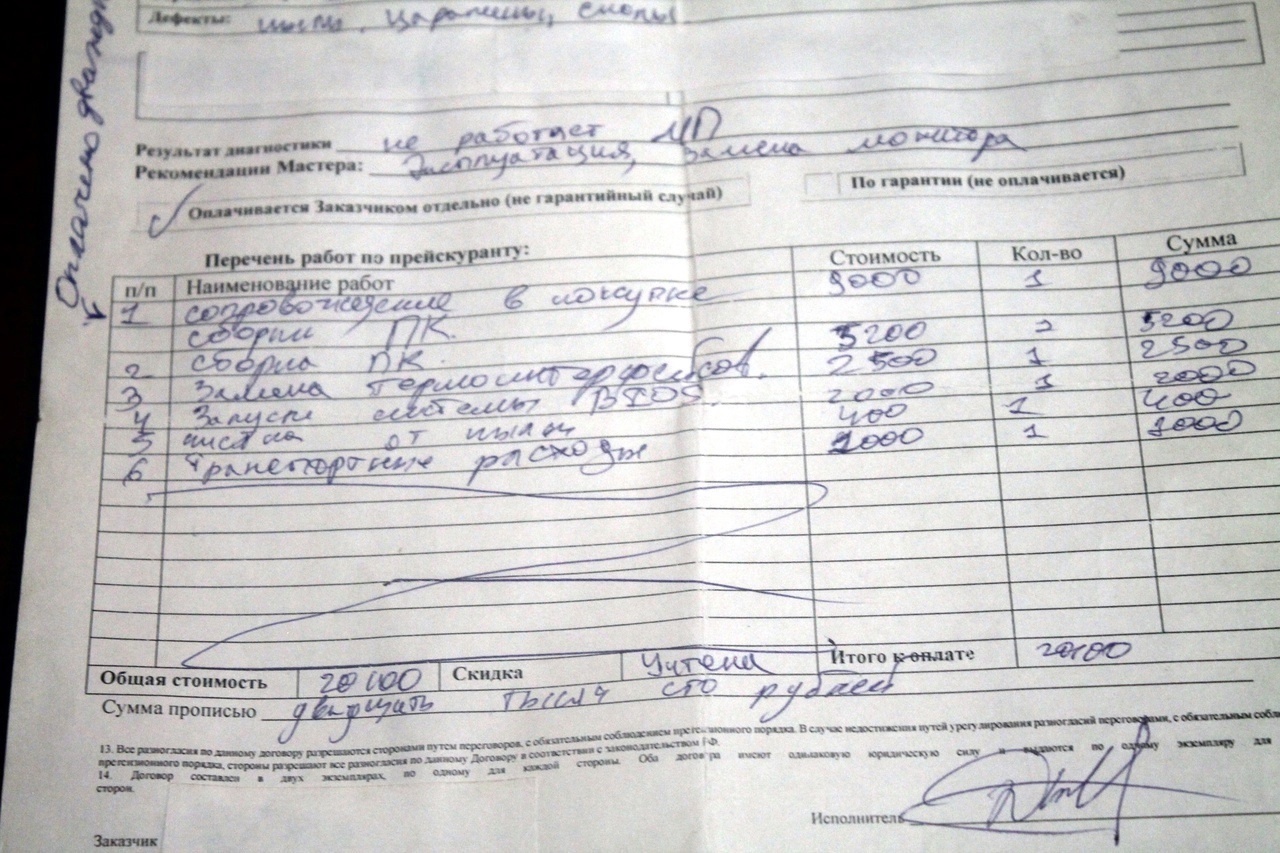 Дефекты: пыль, царапины, сколы
Оплачено дважды
Результат диагностики не работает МП
Рекомендации Мастера: Эксплуатация, замена монитора
Оплачивается Заказчиком отдельно (не гарантийный случай)
По гарантии (не оплачивается)
Перечень работ по прейскуранту:
п/п Наименование работ Стоимость Кол-во Сумма
1 сопровождение в покупке 9000 1 9000
сборки ПК.
2 сборка ПК. 5200 5200
3 Замена термоинтерфейсов. 2500 1 2500
4 Запуск системы BIOS. 2000 1 2000
5 чистка от пыли 400 1 400
6 Транспортные расходы 1000 1 1000
Общая стоимость 20100 Скидка Учтена Итого к оплате 20100
Сумма прописью двадцать тысяч сто рублей
13. Все разногласия по данному договору разрешаются сторонами путем переговоров, с обязательным соблюдением претензионного порядка. В случае недостижения путей урегулирования разногласий переговорами, с обязательным
претензионного порядка, стороны разрешают все разногласия по данному Договору в соответствии с законодательством РФ.
14. Договор составлен в двух экземплярах, по одному для каждой стороны. Оба договора имеют одинаковую юридическую силу и выдаются по одному экземпляру для
сторон.
Исполнитель
Заказчик